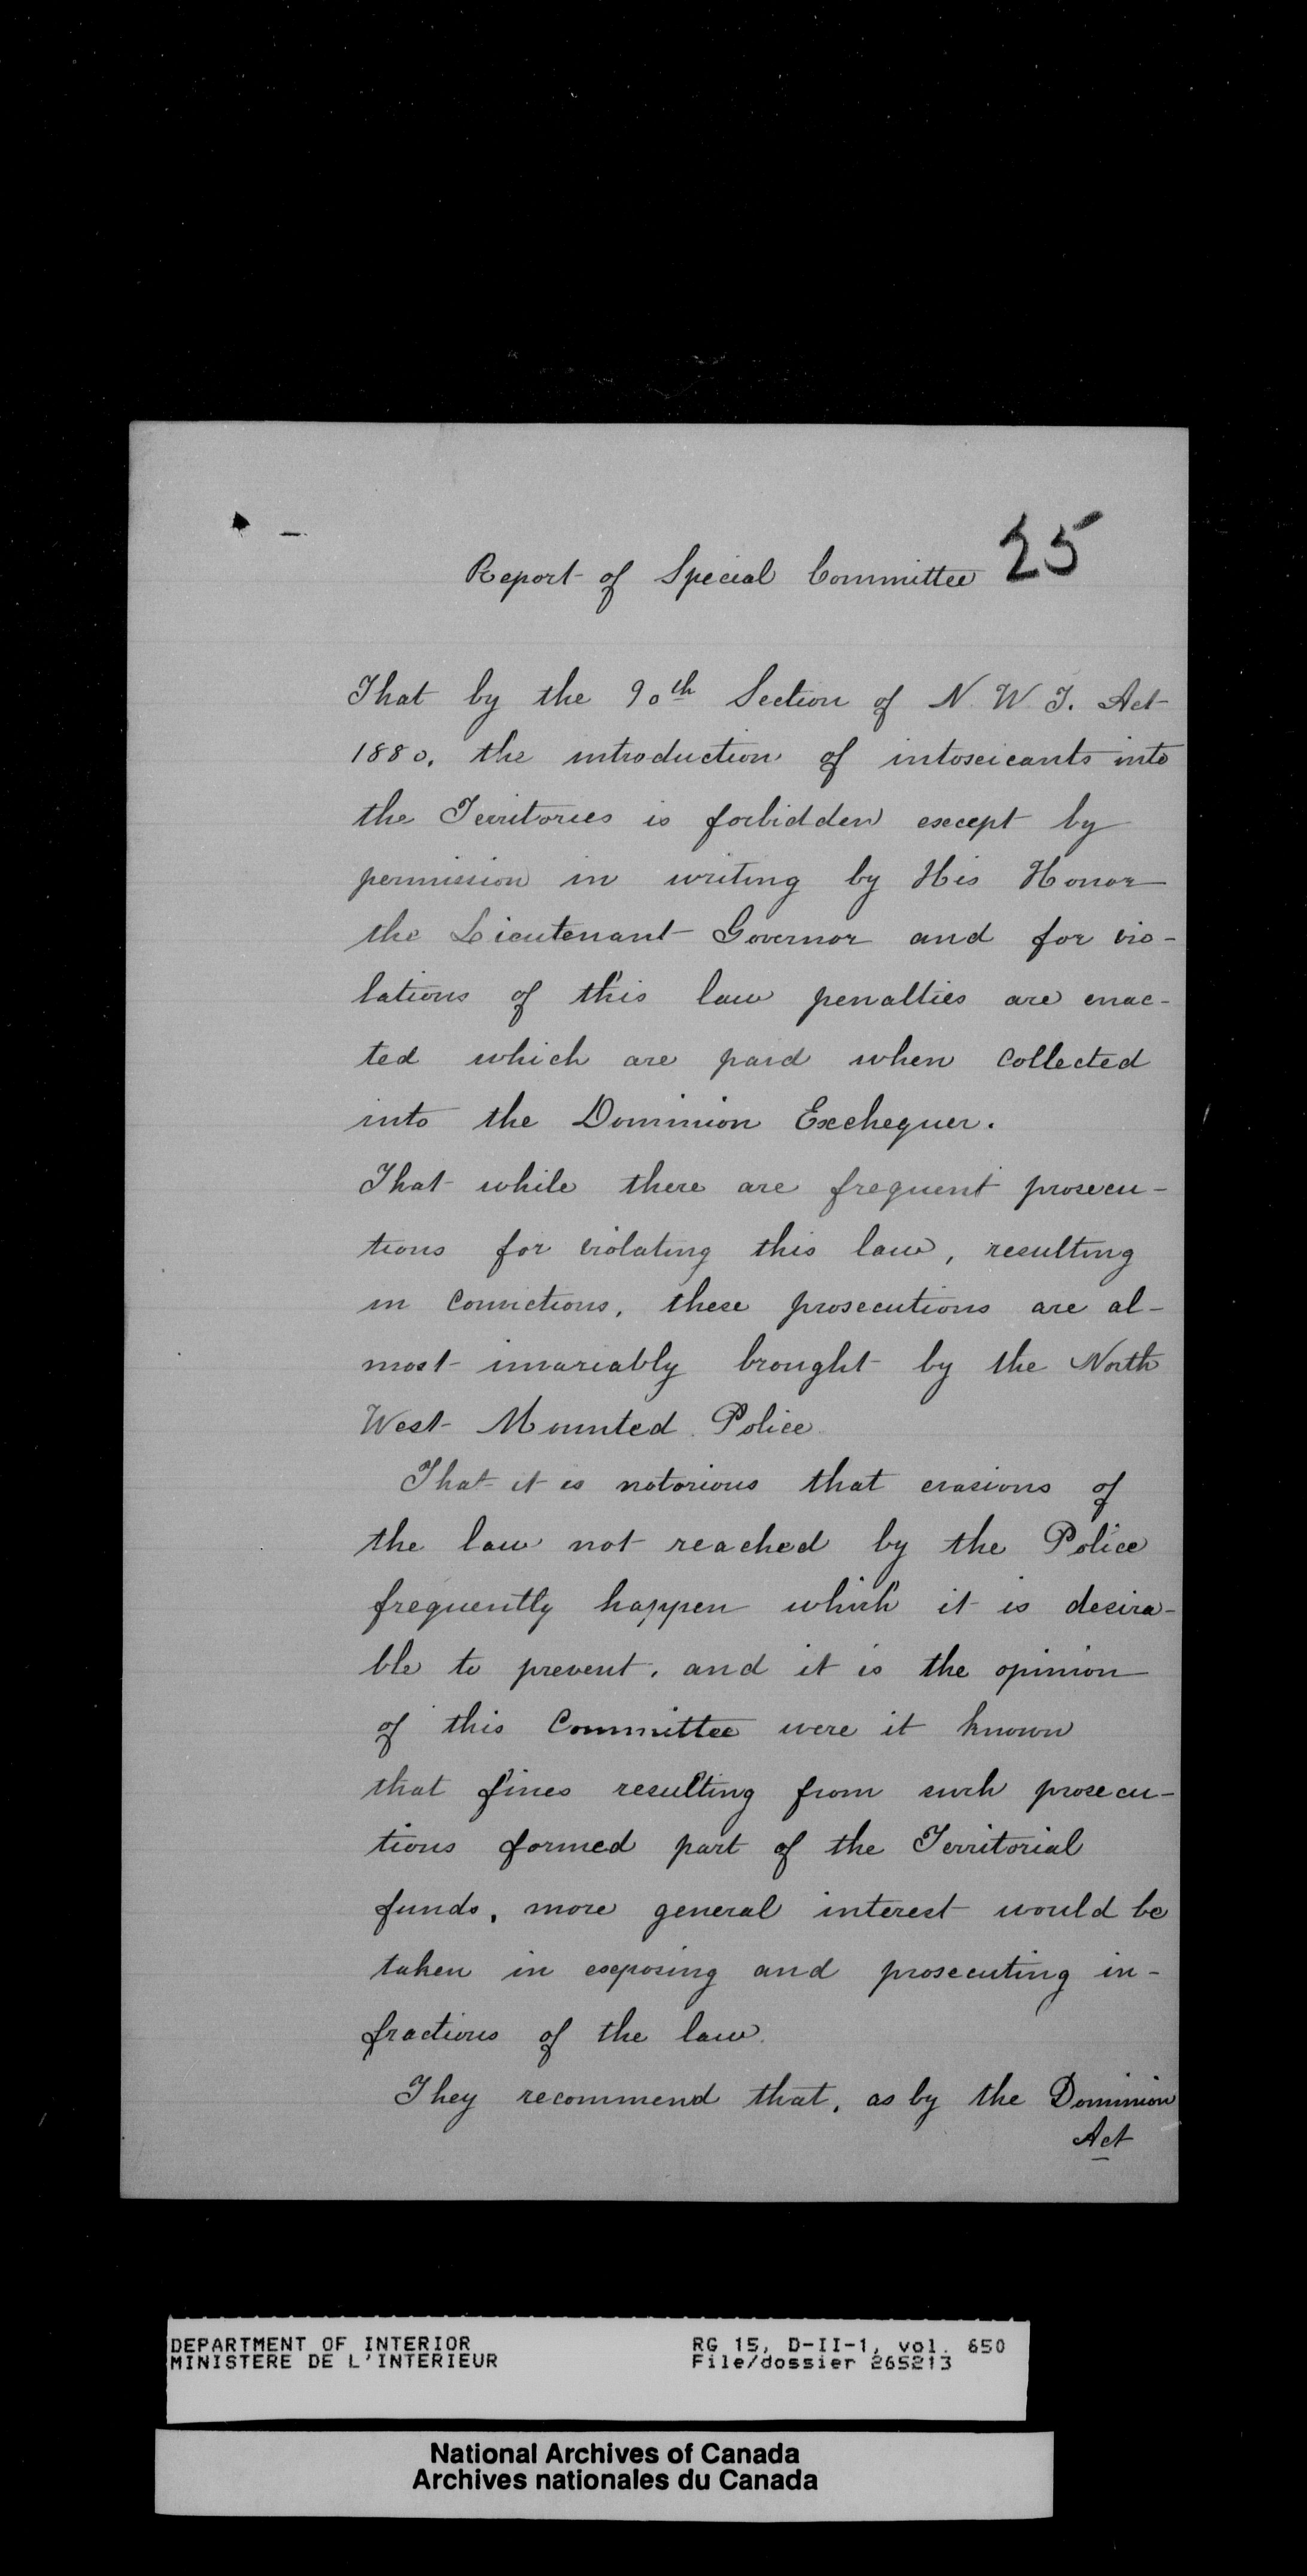 25
Report of Special Committee
That by the 90th Section of N. W. T. Act
1880, the introduction of intoxicants into
the Territories is forbidden except by
permission in writing by His Honor
the Lieutenant Governor and for vio-
lations of this law penalties are enac-
ted which are paid when collected
into the Dominion Exchequer.
That while there are frequent prosecu-
tions for violating this law, resulting
in convictions, these prosecutions are al-
most invariably brought by the North
West Mounted Police
That it is notorious that evasions of
the law not reached by the Police
frequently happen which it is desira-
ble to prevent, and it is the opinion
of this Committee were it known
that fines resulting from such prosecu-
tions formed part of the Territorial
funds, more general interest would be
taken in exposing and prosecuting in-
fractions of the law.
They recommend that, as by the Dominion
Act
DEPARTMENT OF INTERIOR RG 15, D-II-1, vol. 650
MINISTERE DE L'INTERIEUR File/dossier 265213
National Archives of Canada
Archives nationales du Canada